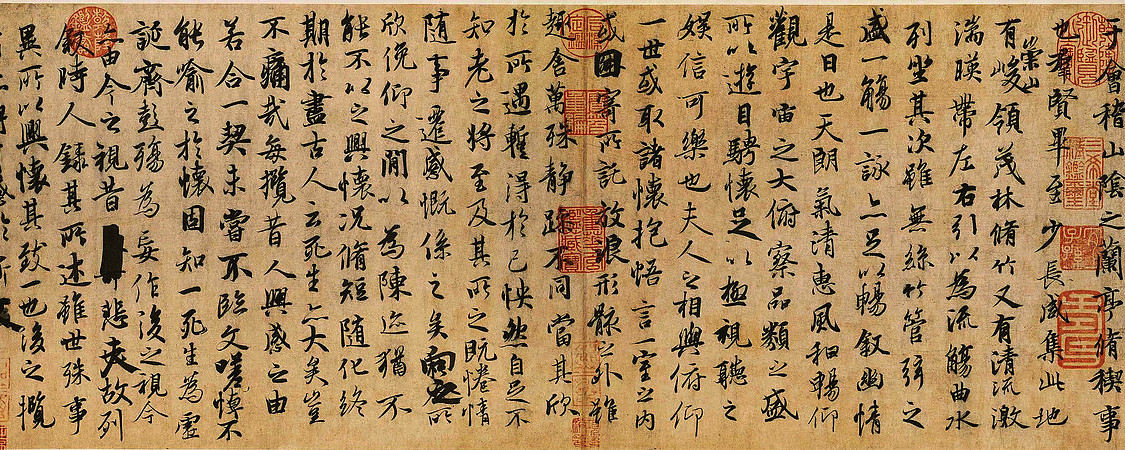 于會稽山陰之蘭亭脩稧事
也羣賢畢至少長咸集此地
有崇山峻領茂林脩竹又有清流激
湍暎帶左右引以為流觴曲水
列坐其次雖無絲竹管弦之
盛一觴一詠亦足以暢敘幽情
是日也天朗氣清惠風和暢仰
觀宇宙之大俯察品類之盛
所以遊目騁懷足以極視聽之
娛信可樂也夫人之相與俯仰
一世或取諸懷抱悟言一室之內
或因寄所託放浪形骸之外雖
趣舍萬殊靜躁不同當其欣
於所遇暫得於己怏然自足不
知老之將至及其所之既惓情
隨事遷感慨係之矣向之所
欣俛仰之閒以為陳迹猶不
能不以之興懷況脩短隨化終
期於盡古人云死生亦大矣豈
不痛哉每攬昔人興感之由
若合一契未嘗不臨文嗟悼不
能喻之於懷固知一死生為虛
誕齊彭殤為妄作後之視今
亦由今之視昔悲夫故列
敘時人錄其所述雖世殊事
異所以興懷其致一也後之攬